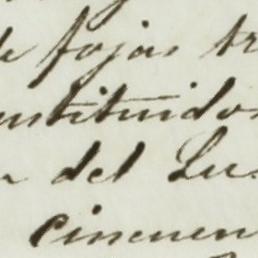 de fojas tr
nstituidos
del Lu
cincuen